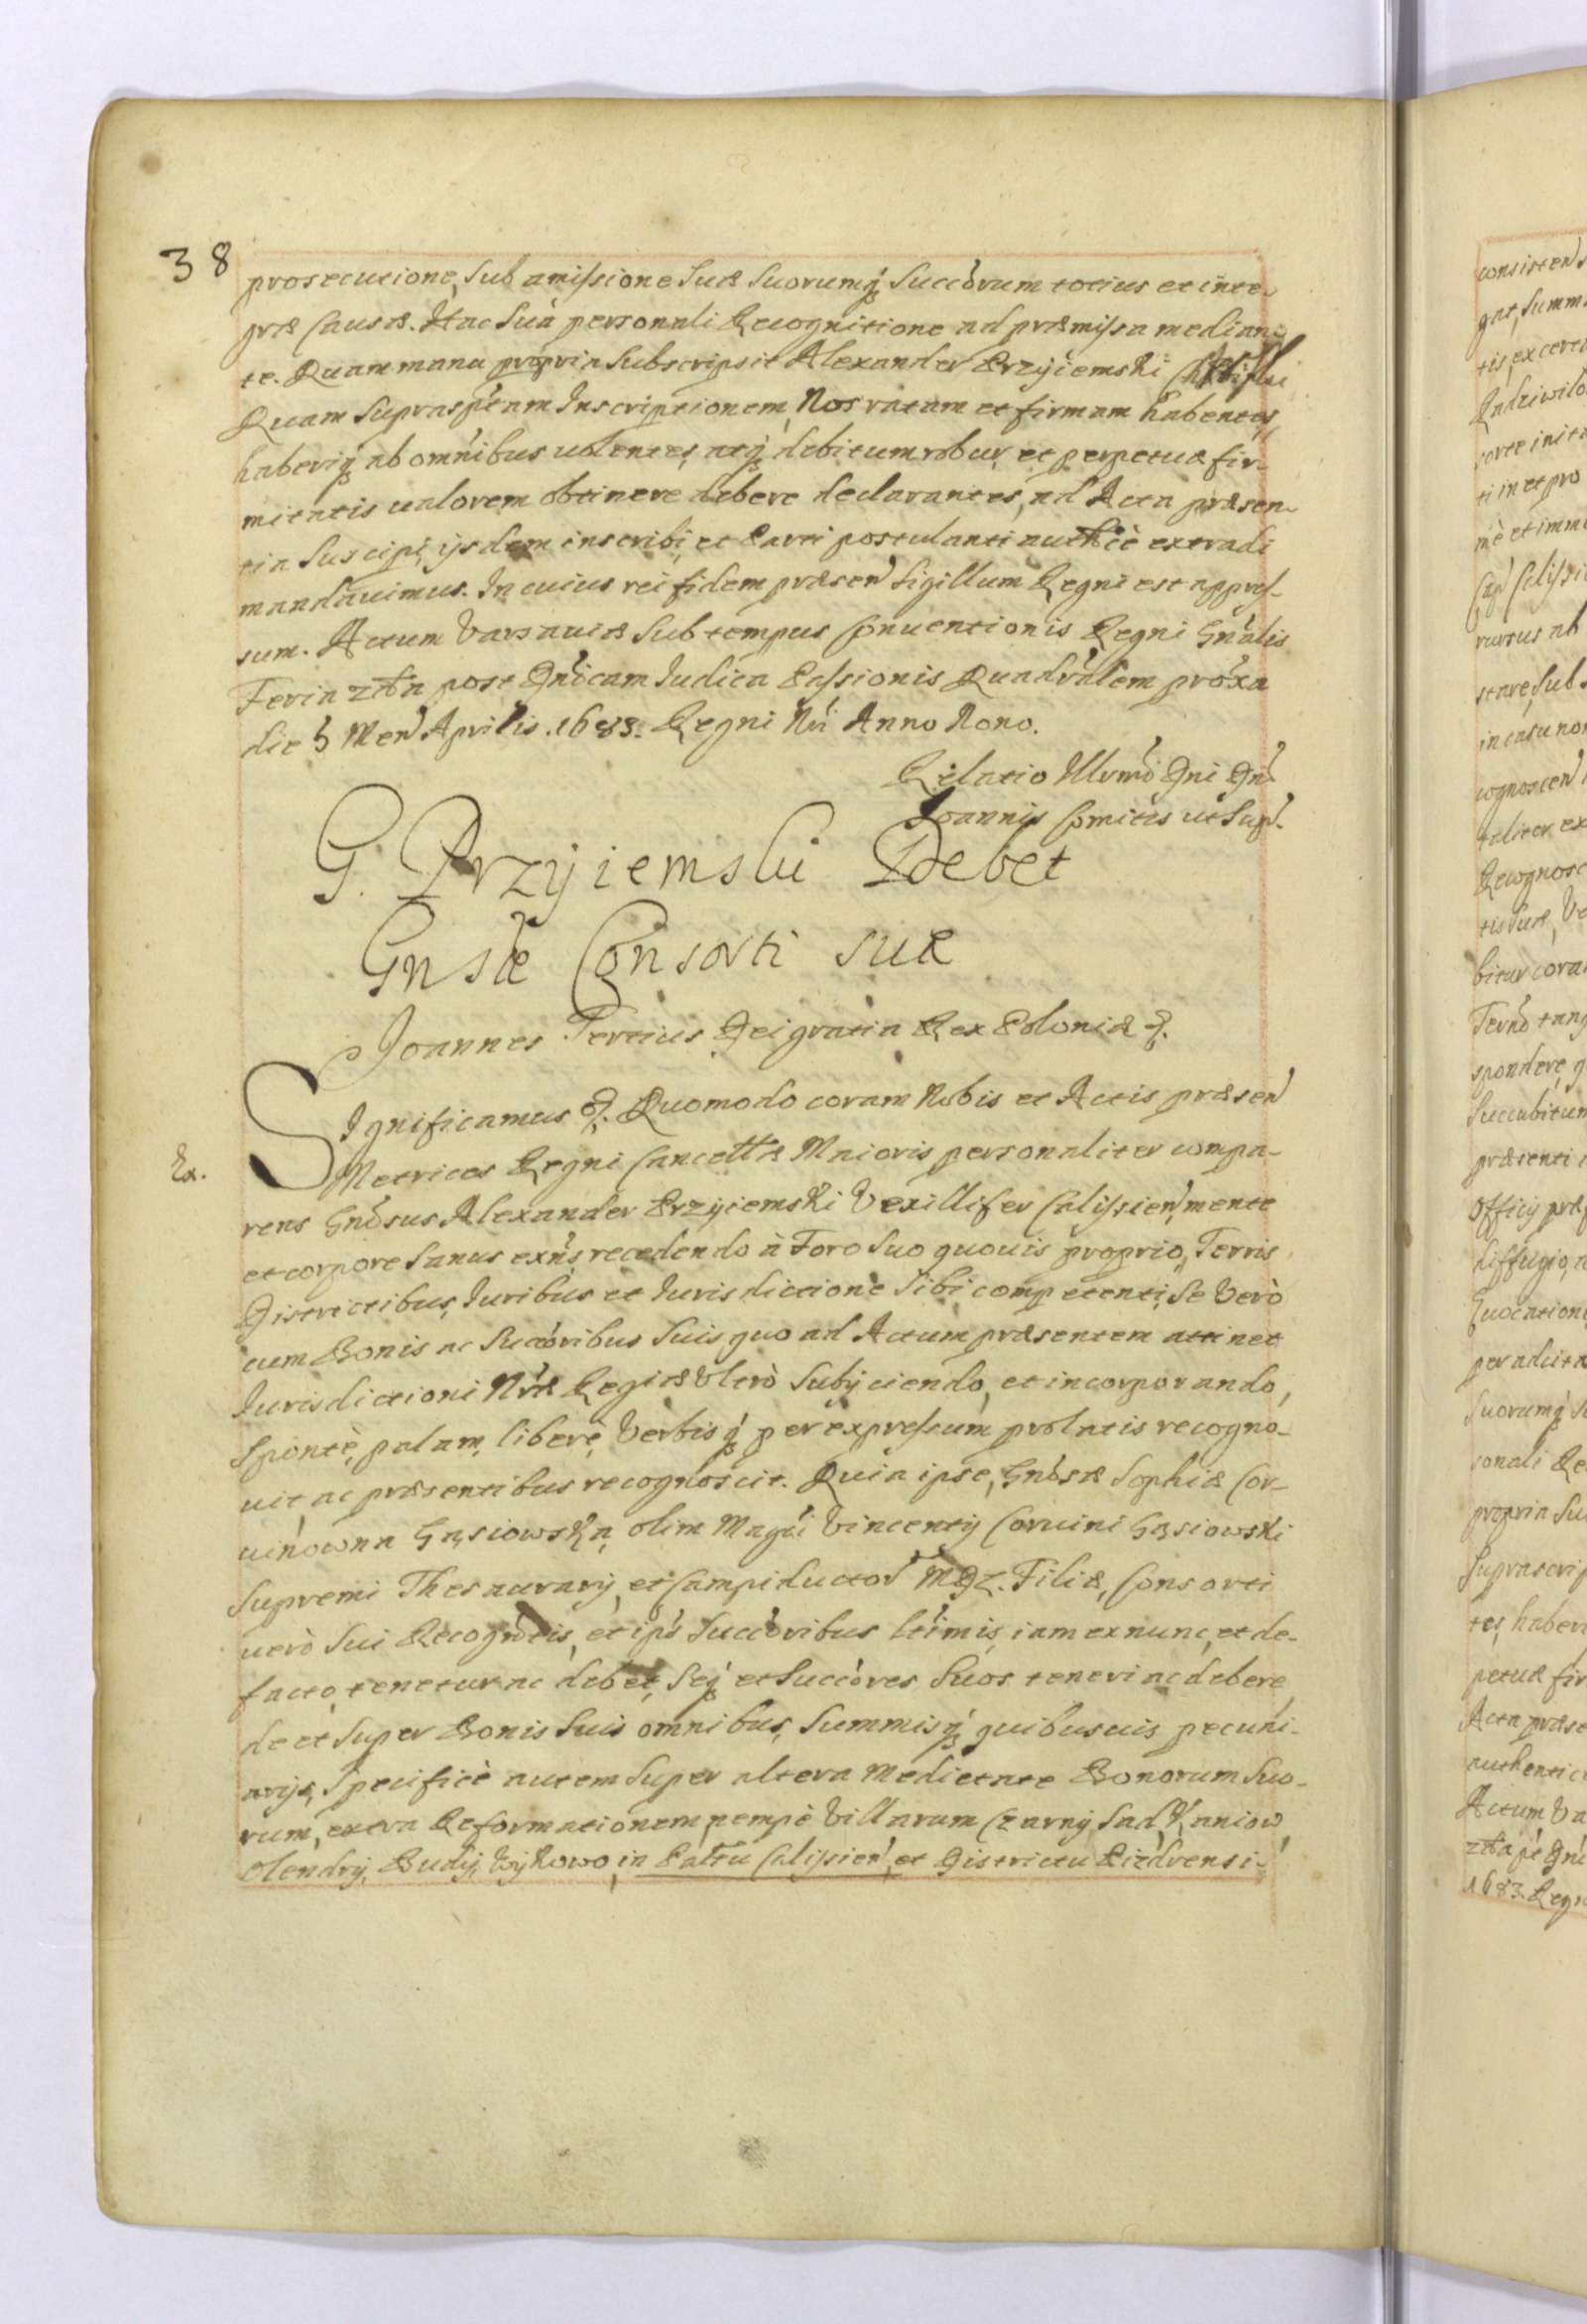 38
prosecutione, Sub amissione Suæ Suorumq́ꝫ Succórum totius et inte-
græ Causæ. Hac Suâ personali Recognitione ad præmissa median-
te. Quam manu propria Subscripsit Alexander Przyiemski
Quam Suprasptam Inscriptionem, Nos ratam et firmam habentes,
haberiq́ꝫ ab omńibus uolentes, atq́ꝫ debitum robur, et perpetuæ fir-
mitatis ualorem obtinere debere declarantes, ad Acta præsen-
tia Suscipi, ijsdem inscribi, et Parti postulanti authcè extradi
mandauimus. In cuius rei fidem præseń Sigillum Regni est appres-
sum. Actum Varsauiæ Sub tempus Conuentionis Regni Gńalis
Feria 2da post Dńicam Iudica Passionis Quadrálem próxa
die 5 Meń Aprilis. 1683. Regni Nri Anno Nono.
Relatio Illvmi Dni Dńi
Joannis Comitis ut Supr.
G. Przyiemski Debet
Gnsæ Consorti suæ
Joannes Tertius Dei gratia Rex Poloniæ &.
Ex.
SIgnificamus &. Quomodo coram Nobis et Actis præseń
Metrices Regni Cancelltæ Maioris personaliter compa-
rens Gnósus Alexander Przyiemski Vexillifer Calissień, mente
et corpore Sanus exńs, recedendo à Foro Suo quouis proprio, Terris
Districtibus, Iuribus et Iurisdictione Sibi competenti, Se Verò
cum Bonis ac Succóribus Suis quo ad Actum præsentem attinet
Iurisdictioni Nŕæ Regiæ Vltrò Subijciendo, et incorporando,
Spontè, palam, liberè, Verbisq́ꝫ per expressum prolatis recogno-
uit, ac præsentibus recognoscit. Quia ipse, Gnósæ Sophiæ Cor-
uinowna Gąsiowska, olim Magci Vincentij Coruini Gąsiowski
Supremi Thesaurarij, et Campiductoŕ MDL. Filiæ, Consorti
uerò Sui Recogńtis, et ips Succóribus ltimis, iam ex nunc, et de-
facto, tenetur ac debet, Seq́ꝫ et Succóres Suos teneri ac debere,
de et Super Bonis Suis omnibus, Summisq́ꝫ quibusuis pecuni-
arijs, Specificè autem Super altera Medietate Bonorum Suo-
rum, extra Reformationem, nempè Villarum Czarny Sad, Kaniow,
Olendry, Budy, Wykowo, in Pałtu Calissień, et Districtu Pizdrensi-